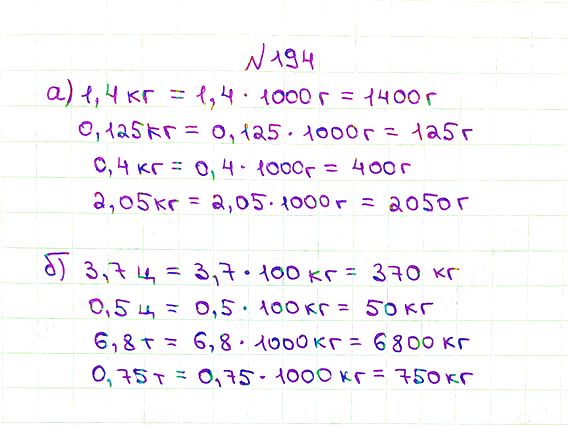 №194
а) 1,4 кг = 1,4 · 1000 г = 1400 г
0,125 кг = 0,125 · 1000 г = 125 г
0,4 кг = 0,4 · 1000 г = 400 г
2,05 кг = 2,05 · 1000 г = 2050 г
б) 3,7 ц = 3,7 · 100 кг = 370 кг
0,5 ц = 0,5 · 100 кг = 50 кг
6,8 т = 6,8 · 1000 кг = 6800 кг
0,75 т = 0,75 · 1000 кг = 750 кг